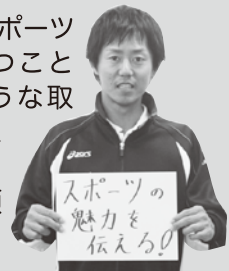 スポーツ
つこと
うな取
asics
スポーツの
魅力を
伝える!